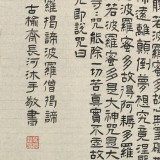 遠離顛倒夢想究竟涅
若波羅蜜多故得阿耨多羅
若波羅蜜多是大神咒是大
咒能除一切苦真實不虛故
咒即說咒曰
羅揭諦波羅僧揭諦
古榆齋長河沐手敬書